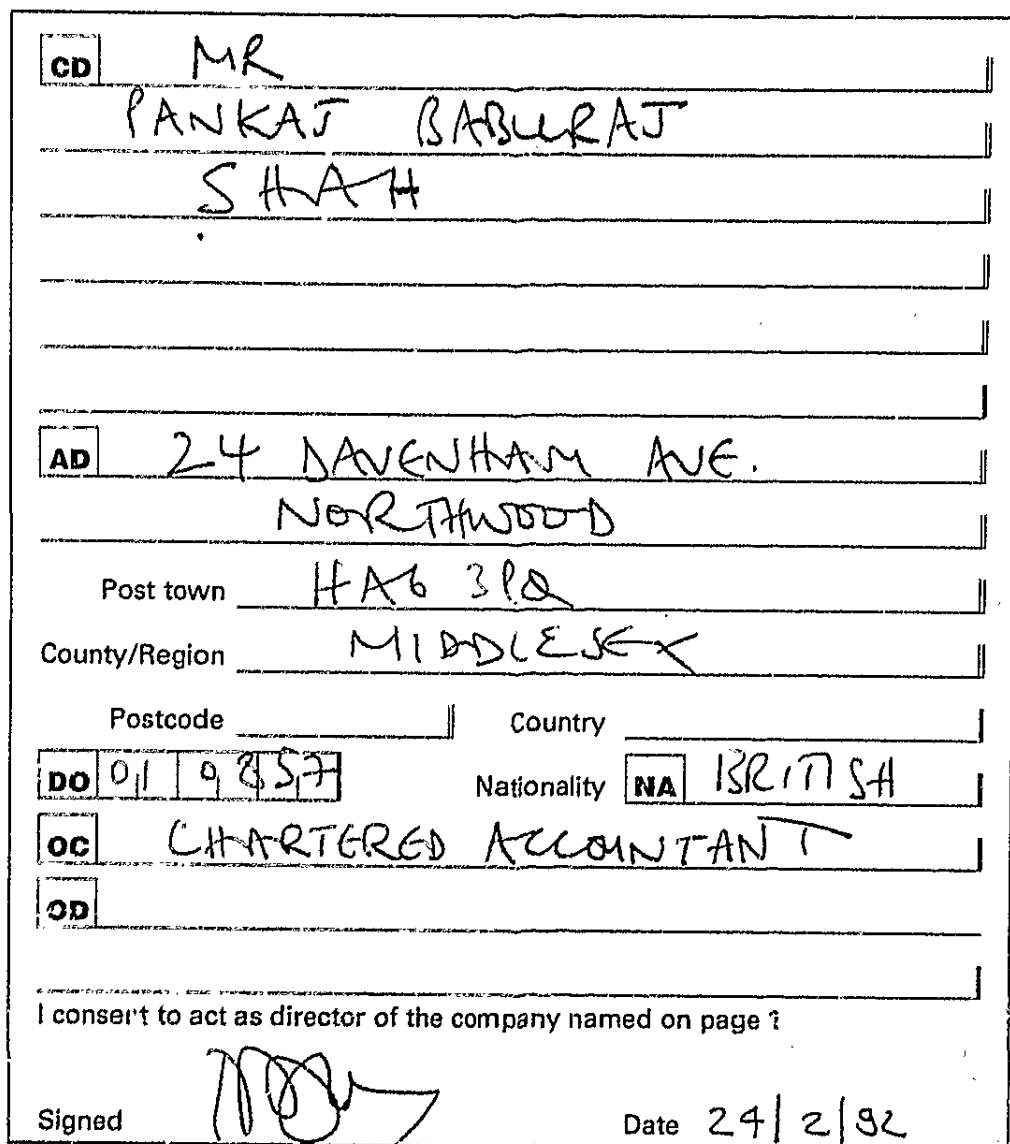 CD MR
PANKAJ BABURAJ
SHAH
AD 24 DAVENHAM AVE.
NORTHWOOD
Post town HA6 3PQ
County/Region MIDDLESEX
Postcode Country
DO 01 0857 Nationality NA BRITISH
OC CHARTERED ACCOUNTANT
OD
I consent to act as director of the company named on page 1
Signed Date 24/2/92